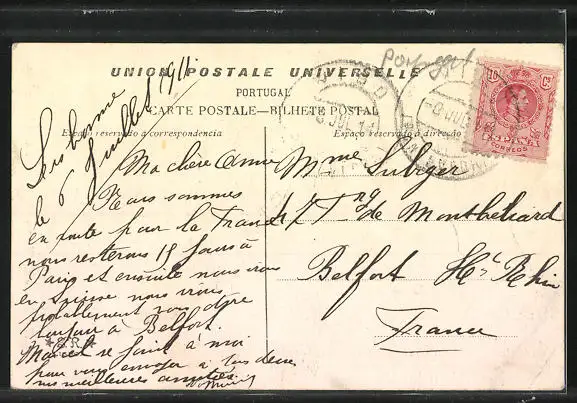 UNION POSTALE UNIVERSELLE
PORTUGAL
CARTE POSTALE—BILHETE POSTAL
Espaço reservado á correspondencia
Espaço reservado á direcção
Portugal
10 Cs
ESPAÑA
CORREOS
Lisbonne
le 6 Juillet 1911
Ma chère Anna
Nous sommes
en route pour la France
nous resterons 15 jours à
Paris et ensuite nous irons
en Suisse nous irons
probablement vous dire
bonjour à Belfort.
Marcel se joint à moi
pour vous envoyer à tous deux
nos meilleures amitiés
Mme Subiger
47 Fg de Montbéliard
Belfort Ht Rhin
France